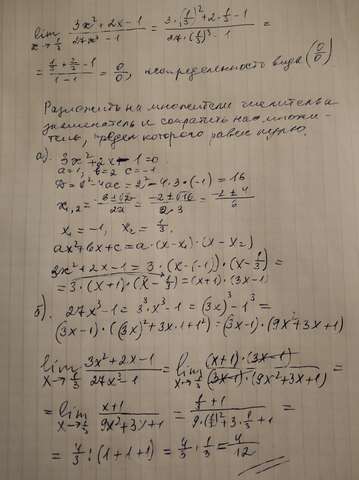 lim x→1/3 (3x²+2x-1)/(27x³-1) = (3·(1/3)²+2·1/3-1)/(27·(1/3)³-1) =
= (1/3+2/3-1)/(1-1) = 0/0, неопределенность вида (0/0)
Разложить на множители числитель и
знаменатель и сократить на множи-
тель, предел которого равен нулю.
а). 3x²+2x-1=0.
a=1, b=2 c=-1
D=b²-4ac=2²-4·3·(-1)=16
x₁,₂ = (-b±√D)/2a = (-2±√16)/(2·3) = (-2±4)/6
x₁=-1, x₂=1/3.
ax²+bx+c=a·(x-x₁)·(x-x₂)
3x²+2x-1=3·(x-(-1))·(x-1/3)=
=3·(x+1)·(x-1/3)=(x+1)·(3x-1)
б). 27x³-1=3³·x³-1=(3x)³-1³=
(3x-1)·((3x)²+3x·1+1²)=(3x-1)·(9x²+3x+1)
lim x→1/3 (3x²+2x-1)/(27x³-1) = lim x→1/3 ((x+1)·(3x-1))/((3x-1)·(9x²+3x+1)) =
= lim x→1/3 (x+1)/(9x²+3x+1) = (1/3+1)/(9·(1/3)²+3·1/3+1) =
= 4/3:(1+1+1) = 4/3·1/3 = 4/12